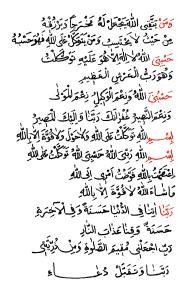 وَمَنْ يَتَّقِ اللهَ يَجْعَلْ لَهُ مَخْرَجًا وَيَرْزُقْهُ
مِنْ حَيْثُ لَا يَحْتَسِبُ وَمَنْ يَتَوَكَّلْ عَلَى اللهِ فَهُوَ حَسْبُهُ
حَسْبِيَ اللهُ لَا إِلَهَ إِلَّا هُوَ عَلَيْهِ تَوَكَّلْتُ
وَهُوَ رَبُّ الْعَرْشِ الْعَظِيمِ
حَسْبِيَ اللهُ وَنِعْمَ الْوَكِيلُ نِعْمَ الْمَوْلَى
وَنِعْمَ النَّصِيرُ غُفْرَانَكَ رَبَّنَا وَإِلَيْكَ الْمَصِيرُ
بِسْمِ اللهِ تَوَكَّلْتُ عَلَى اللهِ وَلَا حَوْلَ وَلَا قُوَّةَ إِلَّا بِاللهِ
بِسْمِ اللهِ رَبِّيَ اللهُ حَسْبِيَ اللهُ تَوَكَّلْتُ عَلَى اللهِ
اعْتَصَمْتُ بِاللهِ فَوَّضْتُ أَمْرِي إِلَى اللهِ
مَا شَاءَ اللهُ لَا قُوَّةَ إِلَّا بِاللهِ
رَبَّنَا آتِنَا فِي الدُّنْيَا حَسَنَةً وَفِي الْآخِرَةِ
حَسَنَةً وَقِنَا عَذَابَ النَّارِ
رَبِّ اجْعَلْنِي مُقِيمَ الصَّلٰوةِ وَمِنْ ذُرِّيَّتِي
رَبَّنَا وَتَقَبَّلْ دُعَاءِ